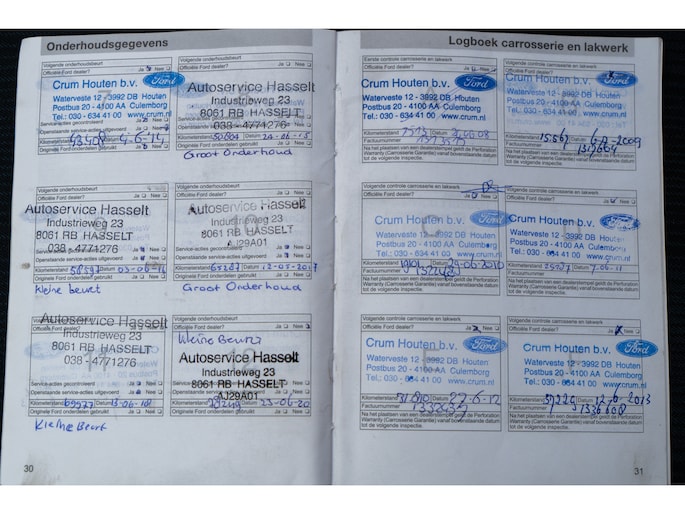 Onderhoudsgegevens
Volgende onderhoudsbeurt
Officiële Ford dealer? Ja Nee
Crum Houten b.v. Ford
Waterveste 12 - 3992 DB Houten
Postbus 20 - 4100 AA Culemborg
Tel.: 030 - 634 41 00 www.crum.nl
Openstaande service-acties uitgevoerd Ja Nee
Kilometerstand Datum
Originele Ford onderdelen gebruikt Ja Nee
Volgende onderhoudsbeurt
Officiële Ford dealer? Ja Nee
Autoservice Hasselt
Industrieweg 23
8061 RB HASSELT
038 - 4771276
Kilometerstand 50604 Datum 24-06-15
Originele Ford onderdelen gebruikt Ja Nee
Groot Onderhoud
Volgende onderhoudsbeurt
Autoservice Hasselt
Industrieweg 23
8061 RB HASSELT
038 - 4771276
Service-acties gecontroleerd Ja Nee
Openstaande service-acties uitgevoerd Ja Nee
Kilometerstand Datum 03-06-16
Originele Ford onderdelen gebruikt Ja Nee
kleine beurt
Volgende onderhoudsbeurt
Autoservice Hasselt
Industrieweg 23
8061 RB HASSELT
AJ29A01
Service-acties gecontroleerd Ja Nee
Openstaande service-acties uitgevoerd Ja Nee
Kilometerstand 65287 Datum 12-05-2017
Originele Ford onderdelen gebruikt Ja Nee
Groot Onderhoud
Volgende onderhoudsbeurt
Officiële Ford dealer? Ja Nee
Autoservice Hasselt
Industrieweg 23
8061 RB HASSELT
038 - 4771276
Service-acties gecontroleerd Ja Nee
Openstaande service-acties uitgevoerd Ja Nee
Kilometerstand Datum
Originele Ford onderdelen gebruikt Ja Nee
Kleine Beurt
Kleine Beurt
Officiële Ford dealer? Ja Nee
Autoservice Hasselt
Industrieweg 23
8061 RB HASSELT
AJ29A01
Kilometerstand Datum 23-06-20
Originele Ford onderdelen gebruikt Ja Nee
30
Logboek carrosserie en lakwerk
Eerste controle carrosserie en lakwerk
Officiële Ford dealer? Ja Nee
Crum Houten b.v. Ford
Waterveste 12 - 3992 DB Houten
Postbus 20 - 4100 AA Culemborg
Tel.: 030 - 634 41 00 www.crum.nl
Kilometerstand 7513 Datum
Factuurnummer
Na het plaatsen van een dealerstempel geldt de Perforation
Warranty (Carrosserie Garantie) vanaf bovenstaande datum
tot de volgende inspectie.
Volgende controle carrosserie en lakwerk
Crum Houten b.v. Ford
Waterveste 12 - 3992 DB Houten
Postbus 20 - 4100 AA Culemborg
Tel.: 030 - 634 41 00 www.crum.nl
Kilometerstand 15562 Datum
Factuurnummer 1319664
Na het plaatsen van een dealerstempel geldt de Perforation
Warranty (Carrosserie Garantie) vanaf bovenstaande datum
tot de volgende inspectie.
Volgende controle carrosserie en lakwerk
Officiële Ford dealer? Ja Nee
Crum Houten b.v. Ford
Waterveste 12 - 3992 DB Houten
Postbus 20 - 4100 AA Culemborg
Tel.: 030 - 634 41 00 www.crum.nl
Kilometerstand Datum
Factuurnummer
Na het plaatsen van een dealerstempel geldt de Perforation
Warranty (Carrosserie Garantie) vanaf bovenstaande datum
tot de volgende inspectie.
Volgende controle carrosserie en lakwerk
Officiële Ford dealer? Ja Nee
Crum Houten b.v. Ford
Waterveste 12 - 3992 DB Houten
Postbus 20 - 4100 AA Culemborg
Tel.: 030 - 634 41 00 www.crum.nl
Kilometerstand Datum 7-06-11
Factuurnummer
Na het plaatsen van een dealerstempel geldt de Perforation
Warranty (Carrosserie Garantie) vanaf bovenstaande datum
tot de volgende inspectie.
Volgende controle carrosserie en lakwerk
Officiële Ford dealer? Ja Nee
Crum Houten b.v. Ford
Waterveste 12 - 3992 DB Houten
Postbus 20 - 4100 AA Culemborg
Tel.: 030 - 634 41 00 www.crum.nl
Kilometerstand Datum 27-6-12
Factuurnummer
Na het plaatsen van een dealerstempel geldt de Perforation
Warranty (Carrosserie Garantie) vanaf bovenstaande datum
tot de volgende inspectie.
Volgende controle carrosserie en lakwerk
Officiële Ford dealer? Ja Nee
Crum Houten b.v. Ford
Waterveste 12 - 3992 DB Houten
Postbus 20 - 4100 AA Culemborg
Tel.: 030 - 634 41 00 www.crum.nl
Kilometerstand Datum 12-6-2013
Factuurnummer 1336608
Na het plaatsen van een dealerstempel geldt de Perforation
Warranty (Carrosserie Garantie) vanaf bovenstaande datum
tot de volgende inspectie.
31